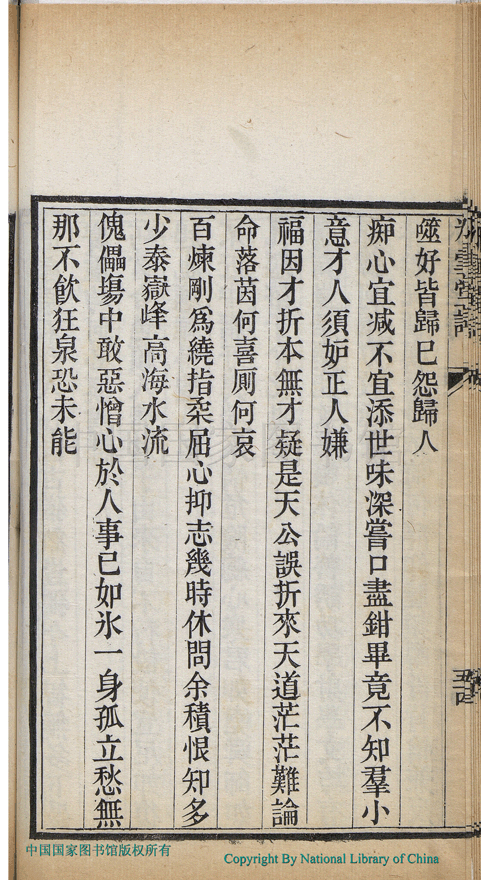 噬好皆歸已怨歸人
痴心宜减不宜添世味深嘗口盡鉗畢竟不知羣小
意才人須妒正人嫌
福因才折本無才疑是天公誤折來天道茫茫難論
命落茵何喜厠何哀
百煉剛爲繞指柔屈心抑志幾時休問余積恨知多
少泰嶽峰高海水流
傀儡塲中敢惡憎心於人事已如氷一身孤立愁無
那不飲狂泉恐未能
中国国家图书馆版权所有
Copyright By National Library of China